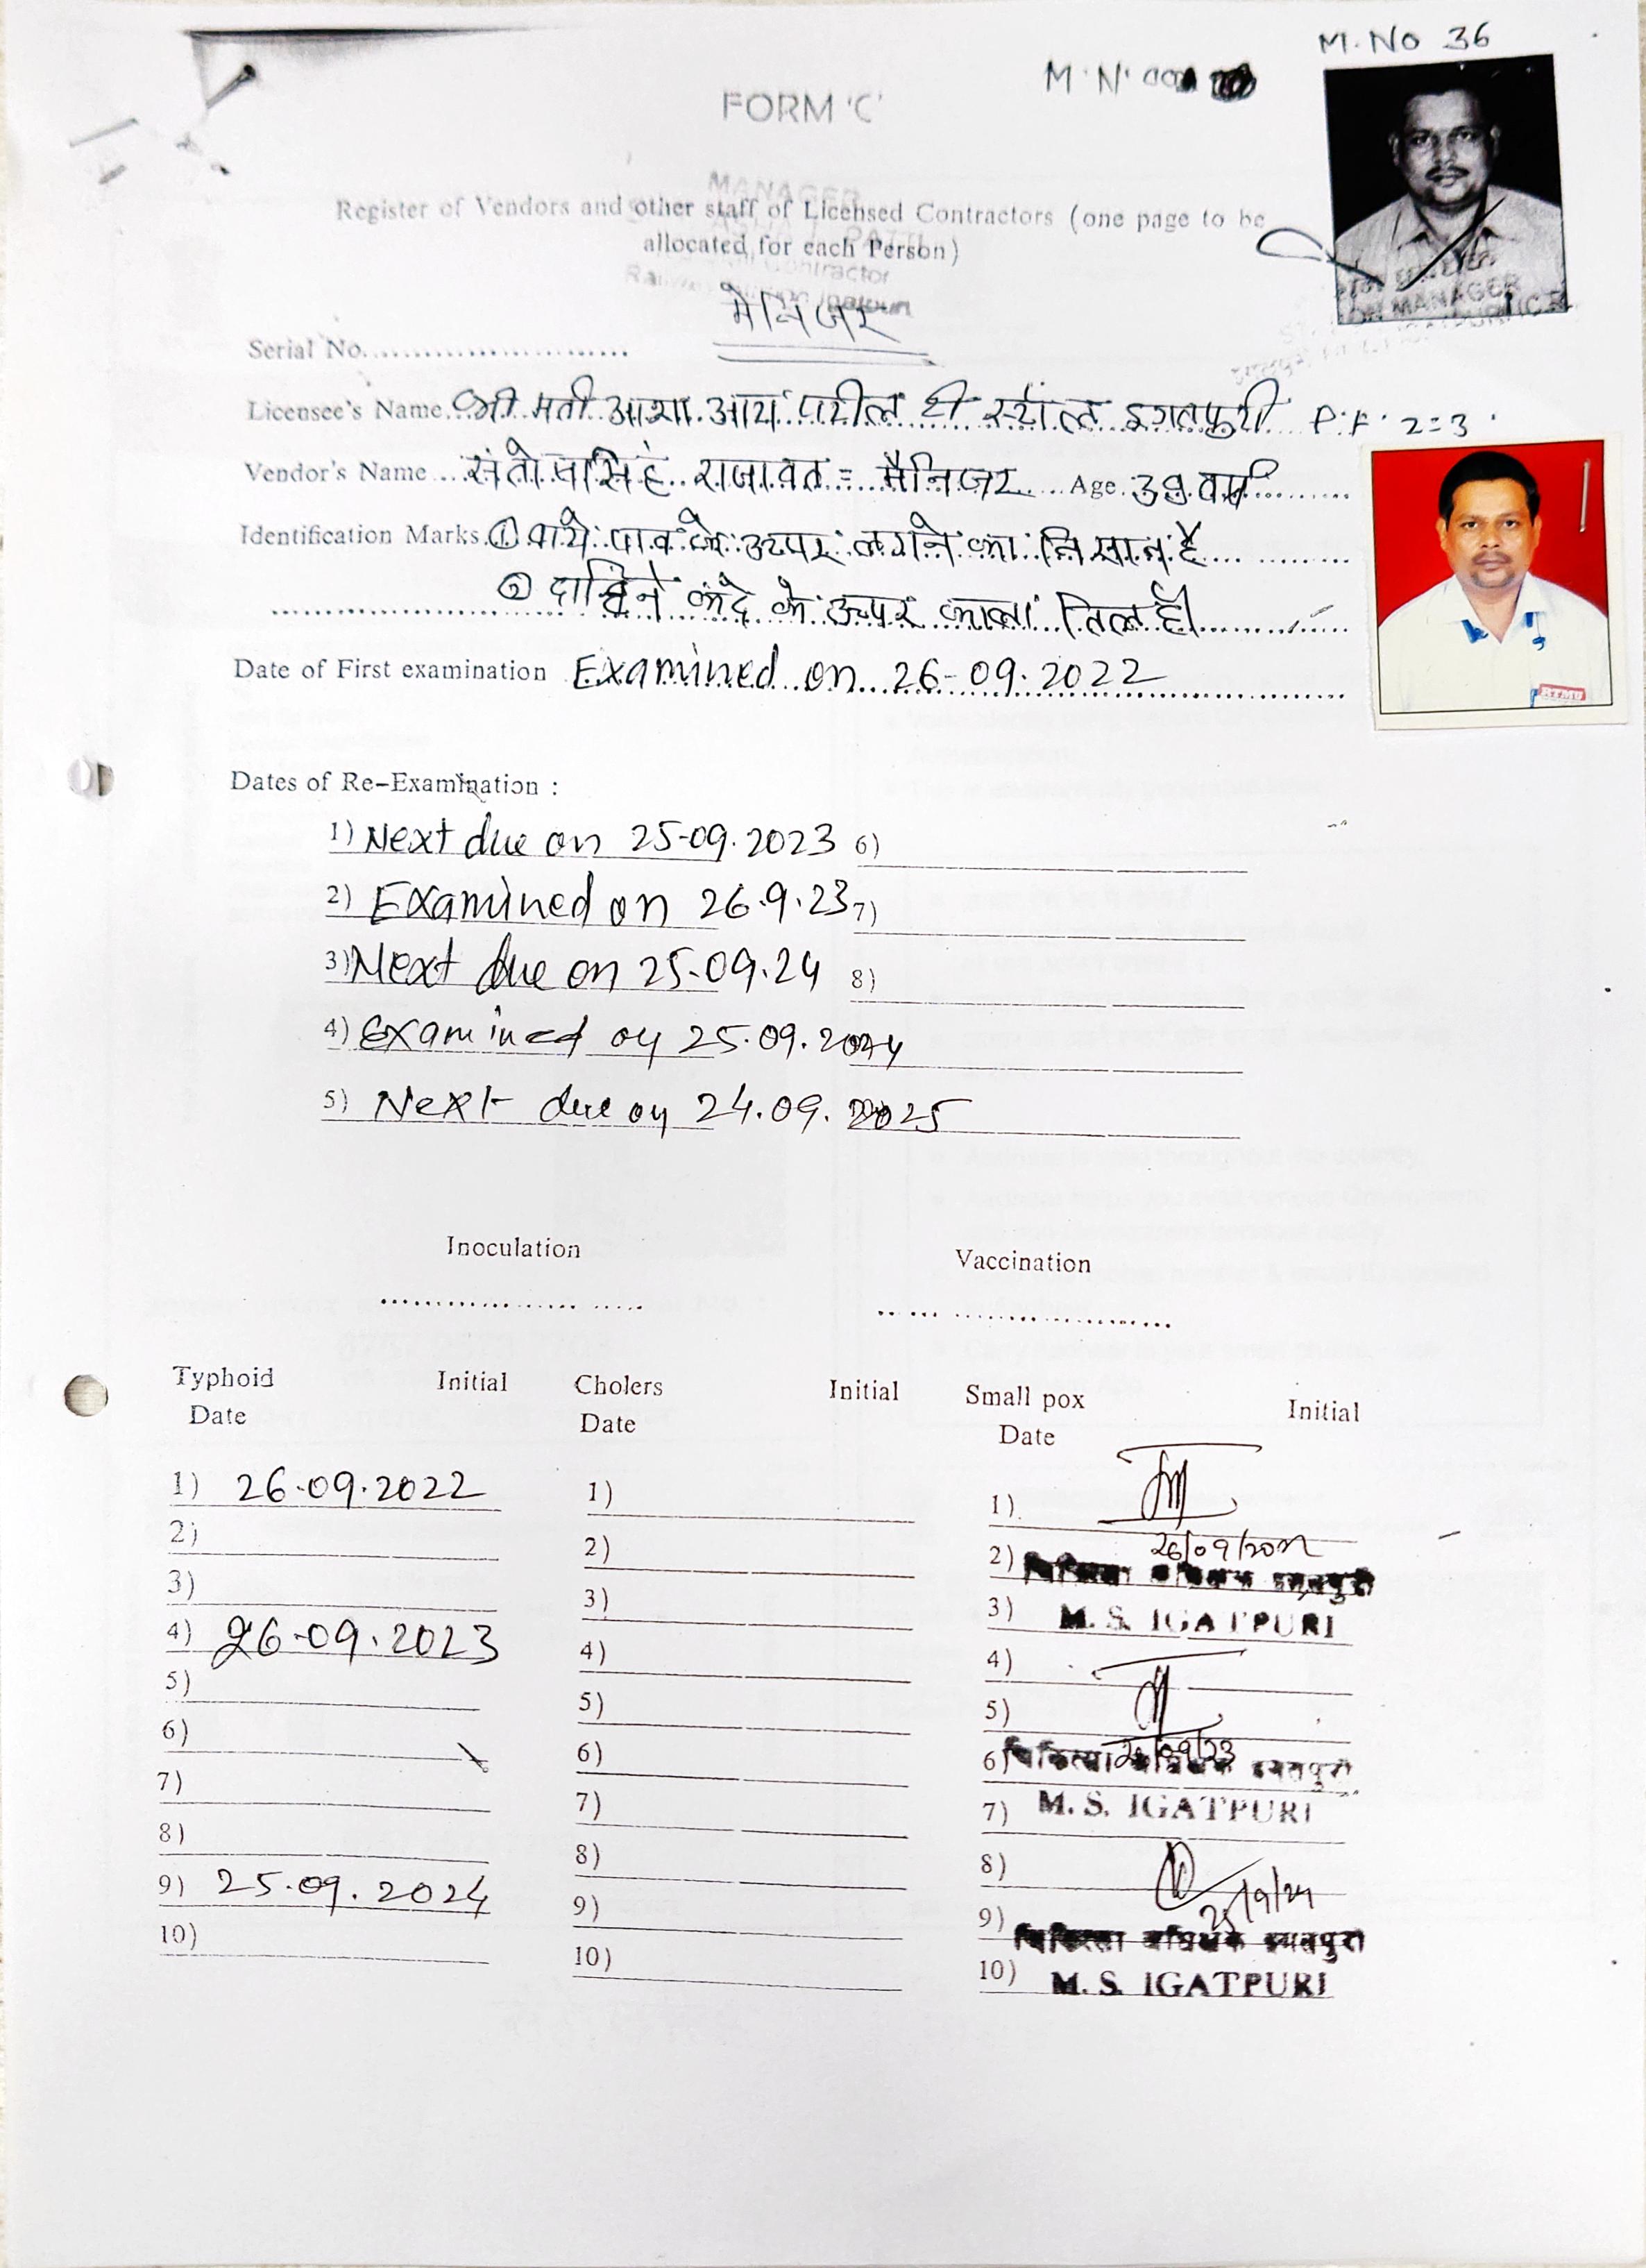 M. No 36
M. N.
FORM 'C'
MANAGER
Register of Vendors and other staff of Licensed Contractors (one page to be
allocated for each Person)
Contractor
मेनिजर
Serial No.
Licensee's Name श्री मती आशा आय पाटील टी स्टॉल इगतपुरी P.F. 2=3
Vendor's Name संतोषसिंह राजावत = मैनिजर Age 39 वर्ष
Identification Marks ① बाये पाव के उपर लगने का निसान है
② दाहिने कंदे के उपर काला तिल है।
Date of First examination Examined on 26-09.2022
RTMU
Dates of Re-Examination :
1) Next due on 25-09.2023 6)
2) Examined on 26.9.23 7)
3) Next due on 25.09.24 8)
4) Examined on 25.09.2024
5) Next due on 24.09.2025
Inoculation Vaccination
Typhoid Initial Cholers Initial Small pox Initial
Date Date Date
1) 26.09.2022 1) 1)
26/09/2022
2) 2) 2) चिकित्सा अधिक्षक इगतपुरी
3) 3) 3) M. S. IGATPURI
4) 26.09.2023 4) 4)
5) 5) 5)
26/09/23
6) 6) 6) चिकित्सा अधिक्षक इगतपुरी
7) 7) 7) M. S. IGATPURI
8) 8) 8)
25/9/24
9) 25.09.2024 9) 9) चिकित्सा अधिक्षक इगतपुरी
10) 10) 10) M. S. IGATPURI